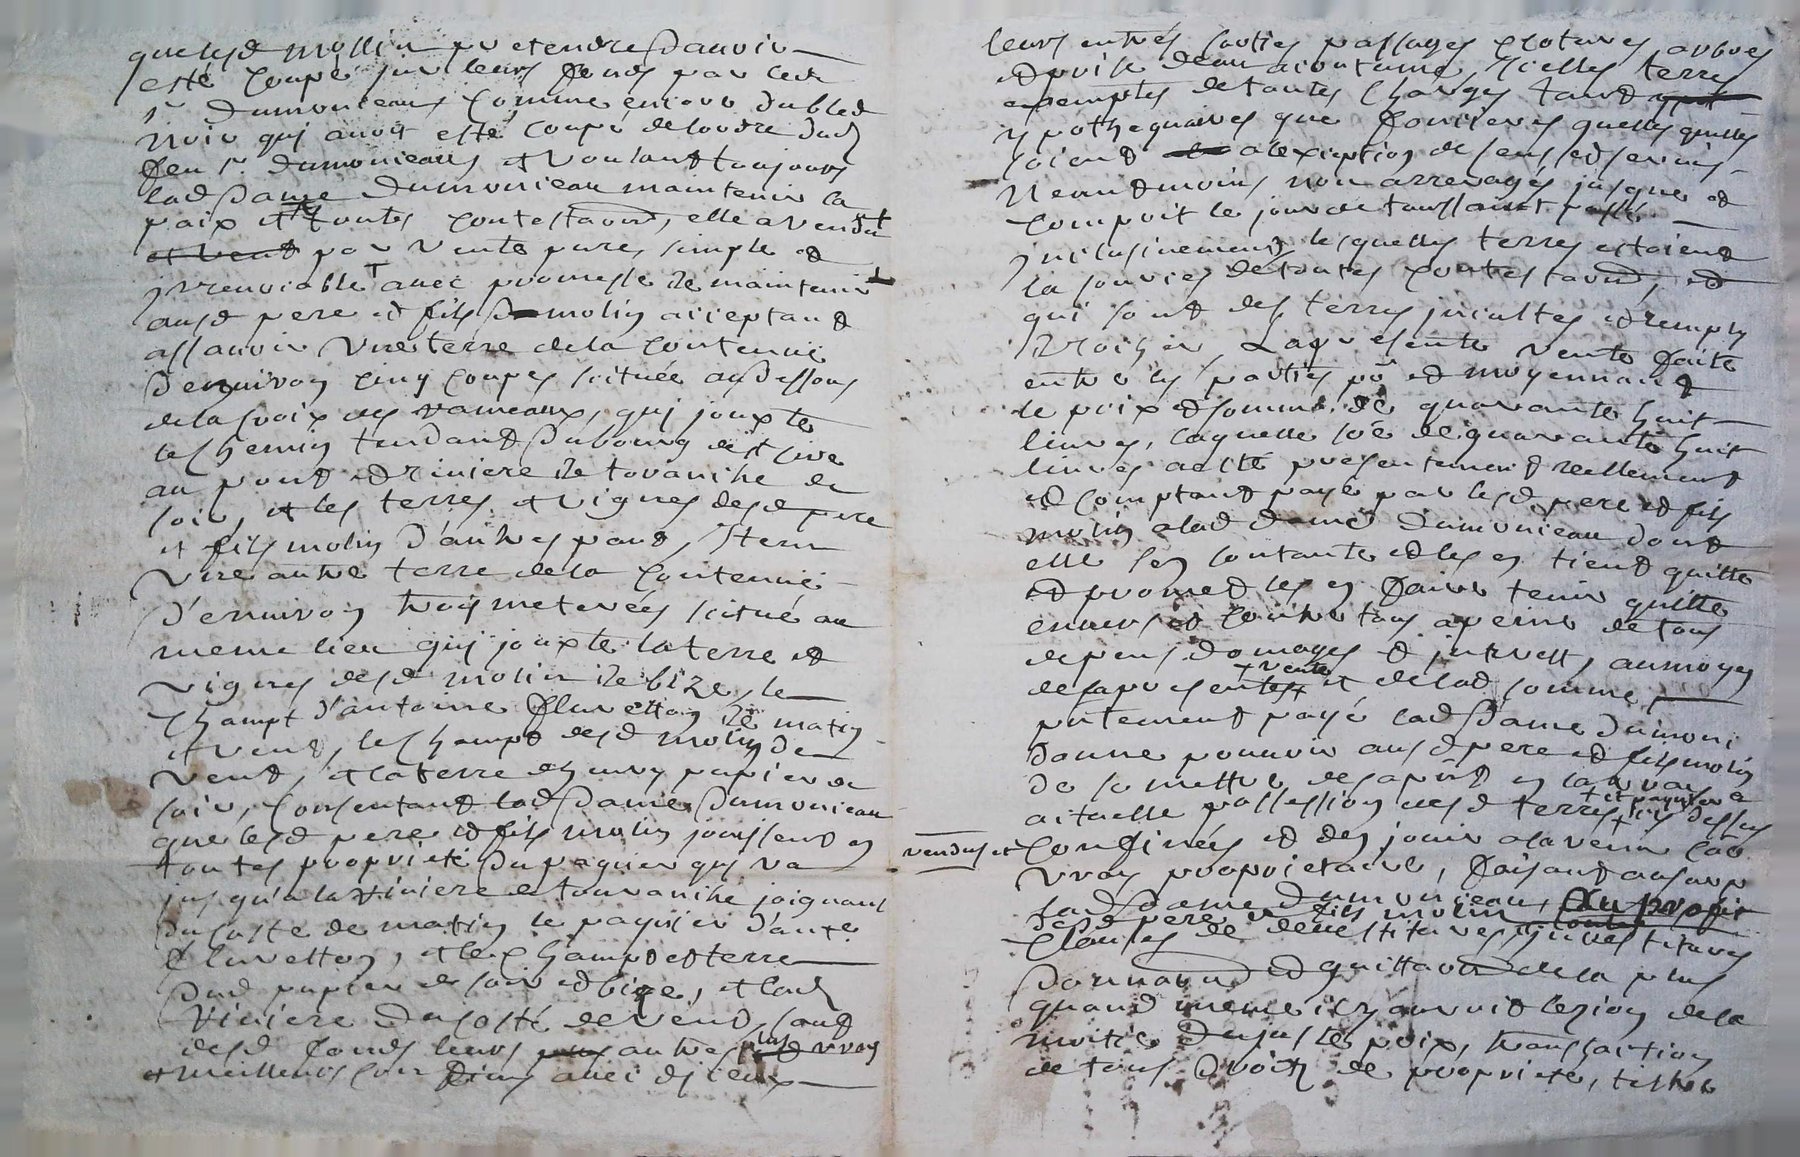 que lesd mollin pretendre d'avoir
esté coupé sur leurs fonds par led
sr dumonceau comme encore du bled
noir qui avoit esté coupé de lordre dud
feu sr. dumonceau, et voulant toujours
lad dame dumonceau maintenir la
paix et toutes contestaons, elle a vendu
et vend par vente pure, simple et
irrevocable avec promesse de maintenir
ausd pere et fils molin acceptant
assavoir une terre de la contenue
d'environ cinq coupes scituée au dessous
de la croix des rameaux, qui jouxte
le chemin tendant du bourg de
au pont et riviere de tovanche de
soir, et les terres et vignes desd pere
et fils molin d'autres pars, Item
une autre terre de la contenue
d'environ trois meterées scitué au
meme lieu qui jouxte la terre et
vignes desd molin de bize, le
champt d'antoine fluvetton de matin
et vent, le champt desd molin de
vent, et la terre papier de
soir, consentant lad dame dumonceau
que lesd pere et fils molin jouissent en
toutes proprieté du paquier qui va
jusqu'a la riviere de touvanche joignant
du costé de matin le paquier d'ante
fluvetton, et le champt et terre
dud papier de soir et bize, et lad
riviere du costé de vent, sauf
desd fonds leurs autres plus vrays
et meilleurs confins avec iceux
leurs entrés sorties passages clotures arbres
et prise deau acoutumé, icelles terres
exemptes de toutes charges tant
ypothequaires que foncieres quelles quelles
soient a lexception de sens et servis
neantmoins non arreragés jusques et
compris le jour de toussaint passé
inclusivement, lesquelles terres estoient
la source de toutes contestaons, et
qui sont des terres incultes et remply
La presente vente faite
entre les parties po et moyennant
le prix et somme de quarante huit
livres, laquelle soe de quarante huit
livres a esté presentement reellement
et comptant payé par lesd pere et fils
molin a lad dame dumonceau dont
elle sen contante et les en tient quitte
et promet les en faire tenir quitte
envers et contre tous a peine de tous
depens domages et interest, au moyen
de la presente vente et de lad somme
pntement payé lad dame dumon
donne pouvoir ausd pere et fils molin
de se mettre des apnt en la vraye
actuelle possession desd terres et paquier cy dessus
vendus et confinés et den jouir a lavenir co
vray proprietaire, faisant
lad dame dumonceau, au profit
desd pere et fils molin toutes
clauses de devestitures, investitures
donnaons et quittaons de la plus
quand meme il y auroit lezion de la
moitié du juste prix, transaction
de tous droits de proprieté, tiltre